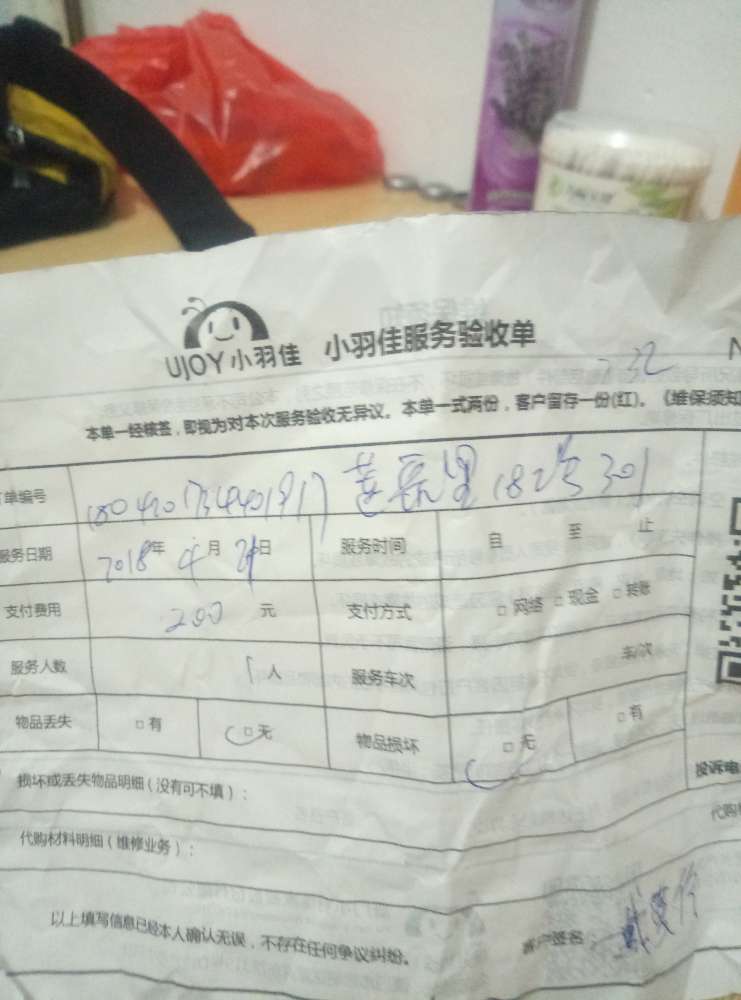 UJOY 小羽佳 小羽佳服务验收单
232
本单一经核签，即视为对本次服务验收无异议。本单一式两份，客户留存一份(红)。《维保须知
单编号 莲岳里182号301
服务日期 2018年4月21日 服务时间 自 至 止
支付费用 200元 支付方式 □网络 □现金 □转账
服务人数 1人 服务车次 车/次
物品丢失 □有 □无 物品损坏 □无 □有
损坏或丢失物品明细（没有可不填）：
投诉电
代购材料明细（维修业务）：
代购
以上填写信息已经本人确认无误，不存在任何争议纠纷。 客户签名：